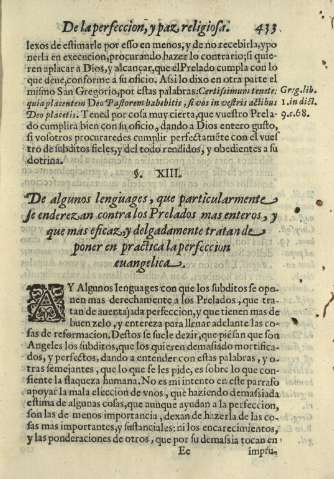 De la perfeccion, y paz religiosa. 433
lexos de estimarle por esso en menos, y de no recebirla, y po
nerla en execucion, procurando hazer lo contrario; si quie-
ren aplacar a Dios, y alcançar, que el Prelado cumpla con lo
que deue, conforme a su oficio. Assi lo dixo en otra parte el
mismo San Gregorio, por estas palabras: Certissimum tenete:
quia placentem Deo Pastorem habebitis, si vos in vestris actibus
Deo placetis. Tened por cosa muy cierta, que vuestro Prela-
do cumplira bien su oficio, dando a Dios entero gusto,
si vosotros procuraredes cumplir perfectamẽte con el vues
tro de subditos fieles, y del todo rendidos, y obedientes a su
dotrina.
Greg. lib.
1. in dict.
9. c. 68.
§. XIII.
De algunos lenguages, que particularmente
se enderezan contra los Prelados mas enteros, y
que mas eficaz, y delgadamente tratan de
poner en practica la perfeccion
euangelica.
AY Algunos lenguages con que los subditos se opo-
nen mas derechamente a los Prelados, que tra-
tan de auentajada perfeccion, y que tienen mas de
buen zelo, y entereza para lleuar adelante las co-
sas de reformacion. Destos se suele dezir, que piẽsan que son
Angeles los subditos, que los quieren demasiado mortifica-
dos, y perfectos, dando a entender con estas palabras, y o-
tras semejantes, que lo que se les pide, es sobre lo que con-
siente la flaqueza humana. No es mi intento en este parrafo
apoyar la mala eleccion de vnos, que haziendo demasiada
estima de algunas cosas, que aunque ayudan a la perfeccion,
son las de menos importancia, dexan de hazerla de las co-
sas mas importantes, y sustanciales: ni los encarecimientos,
y las ponderaciones de otros, que por su demasia tocan en
Ee impru-